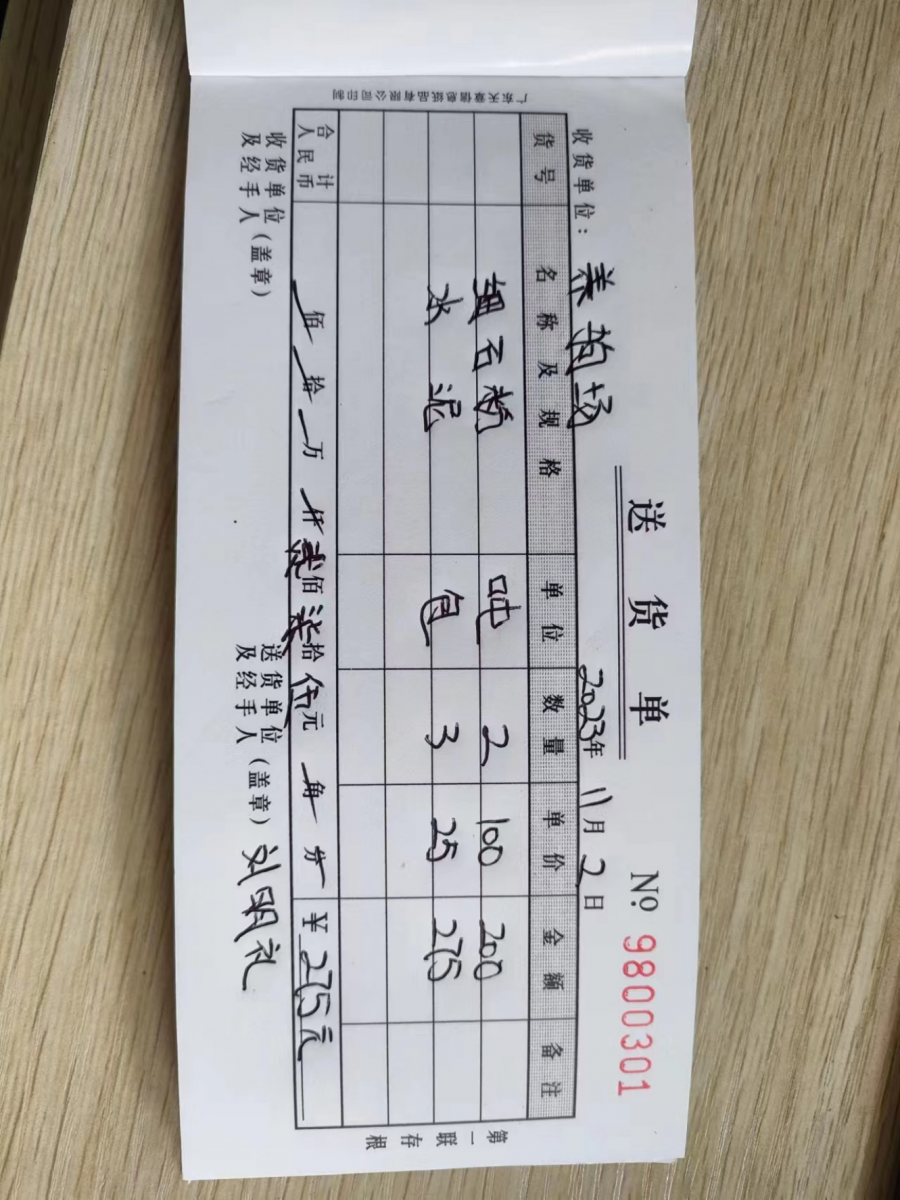 送货单
№ 9800301
收货单位：养狗场 2023年11月2日
货号 名称及规格 单位 数量 单价 金额 备注
细石粉 吨 2 100 200
水泥 包 3 25 275
合计人民币 佰 拾 万 仟 贰佰 柒拾 伍元 角 分 ¥275元
收货单位及经手人（盖章） 送货单位及经手人（盖章） 刘明礼
第一联存根
广东天章信息纸品有限公司印制